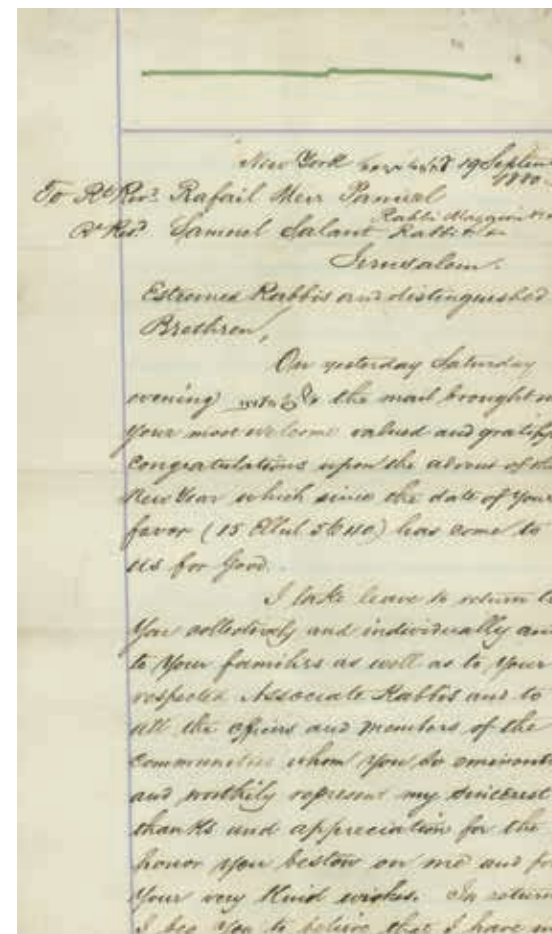 New York 19 Septem
1880.
To Rt Revd. Rafail Meir Panisel
& Revd. Samuel Salant Rabbi
Jerusalem.
Esteemed Rabbis and distinguished
Brethren,
On yesterday Saturday
evening the mail brought m
your most welcome valued and gratify
congratulations upon the advent of the
New Year which since the date of your
favor (15 Ellul 5640) has come to
us for Good.
I take leave to return to
You collectively and individually and
to Your families as well as to Your
respected Associate Rabbis and to
all the officers and members of the
Communities whom you so eminent
and worthily represent my sincerest
thanks and appreciation for the
honor you bestow on me and fo
Your very Kind wishes. In return
I beg You to believe that I have